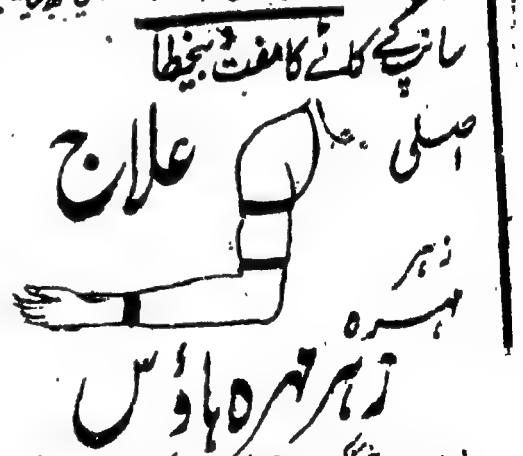 سانپ کے کاٹے کا مفت بیخطا
علاج
اصلی
زہر
مہرہ
زہر مہرہ ہاؤس